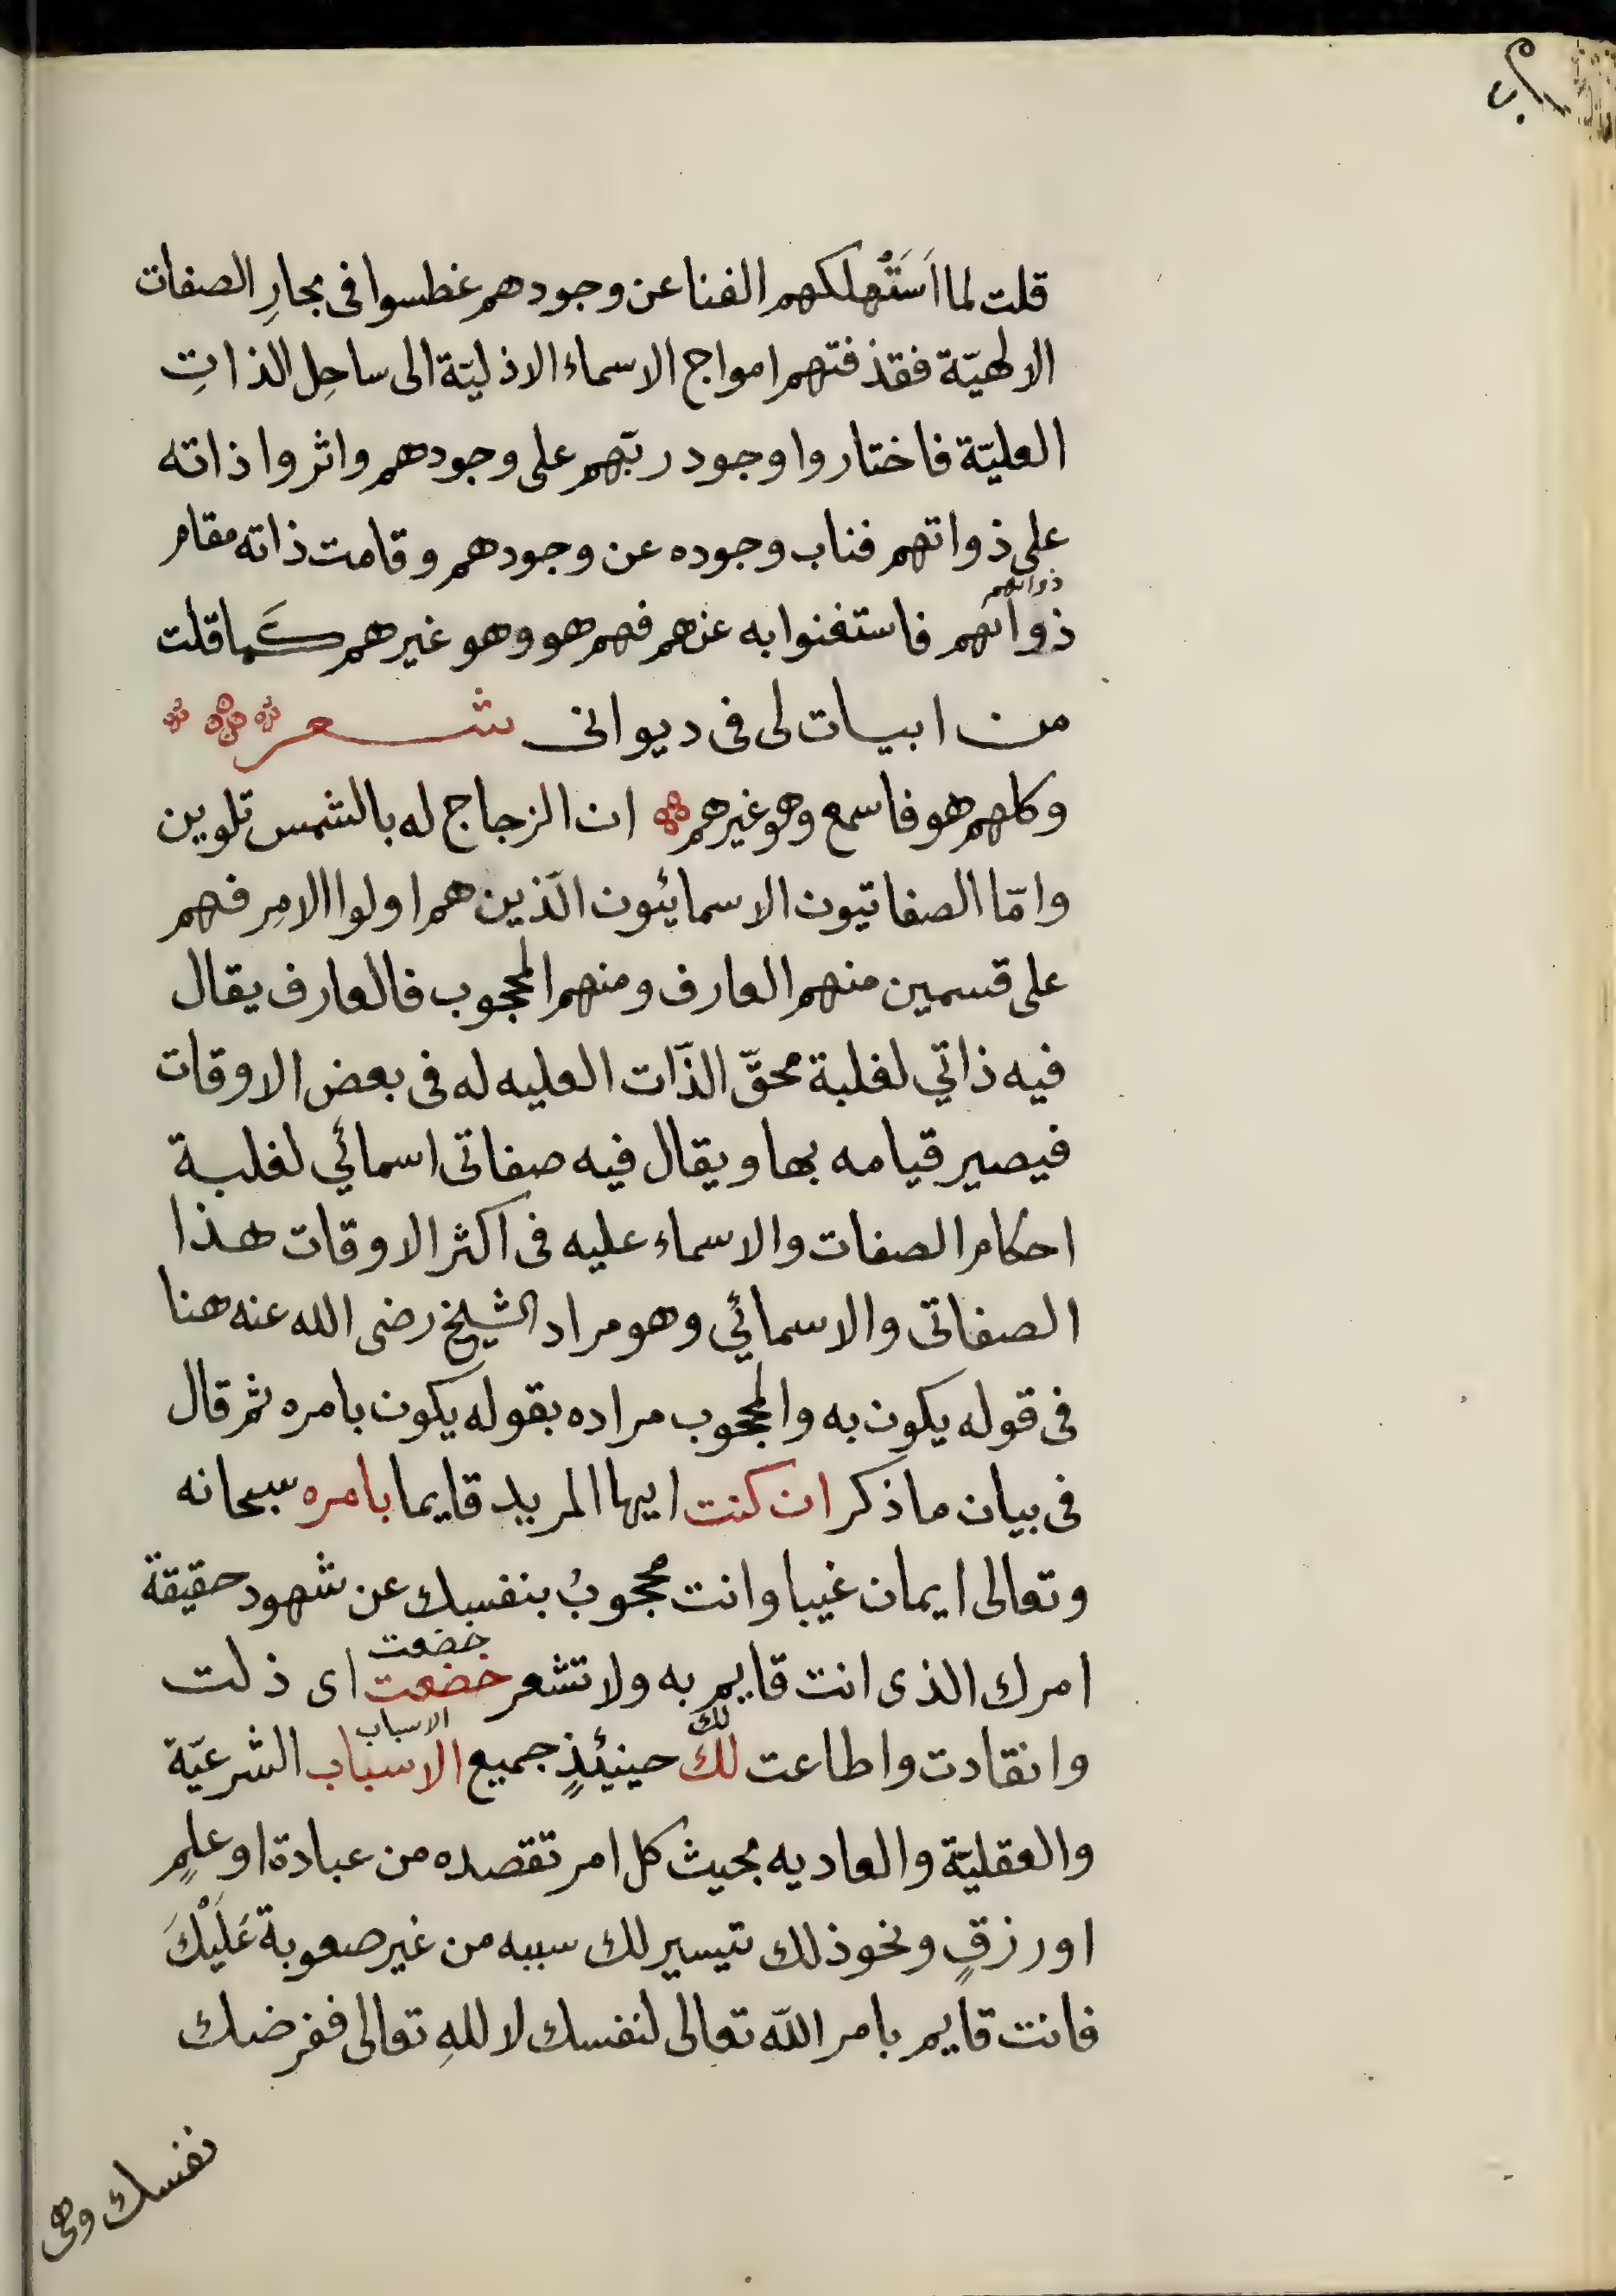 قلت لما اَسَتْهلكهم الفنا عن وجودهم غطسوا فى بحارِ الصفات
الالهيّة فقذفتهم امواج الاسماء الاذليّة الى ساحِل الذاتِ
العليّة فاختاروا وجود ربّهم على وجودهم واثروا ذاته
على ذواتهم فناب وجوده عن وجودهم وقامت ذاته مقام
ذواتهم
ذواتهم فاستغنوا به عنهم فهم هو وهو غيرهم كَما قلت
من ابيات لى فى ديوانى شعر
وكلهم هو فاسمع وهو غيرهم ان الزجاج له بالشمس تلوين
وامّا الصفاتيون الاسمائيون الّذين هم اولوا الامِر فهم
على قسمين منهم العارف ومنهم المحجوب فالعارف يقال
فيه ذاتي لغلبة محقّ الذّات العليه له فى بعض الاوقات
فيصير قيامه بها ويقال فيه صفاتى اسمائي لغلبة
احكام الصفات والاسماء عليه فى اكثر الاوقات هذا
الصفاتى والاسمائي وهو مراد الشيخ رضى الله عنه هنا
فى قوله يكون به والمحجوب مراده بقوله يكون بامره ثم قال
فى بيان ما ذكر ان كنت ايها المريد قايما بامره سبحانه
وتعالى ايمان غيبا وانت محجوبُ بنفسك عن شهود حقيقة
خضعت
امرك الذى انت قايم به ولا تشعر خضعت اى ذلت
لك الاسباب
وانقادت واطاعت لك حينيئذٍ جميع الاسباب الشرعيّة
والعقليّة والعاديه بحيث كل امر تقصده من عبادة او علمٍ
او رزقٍ ونحو ذلك تتيسير لك سببه من غير صعوبة عَلَيْكَ
فانت قايم بامر الله تعالى لنفسك لا للهِ تعالى ففرضك
نفسك وهى